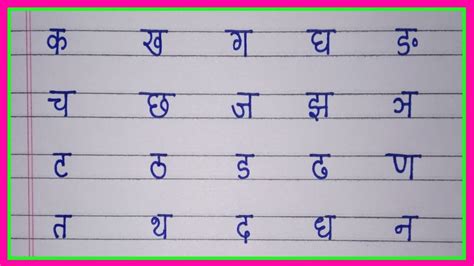 क ख ग घ ङ
च छ ज झ ञ
ट ठ ड ढ ण
त थ द ध न